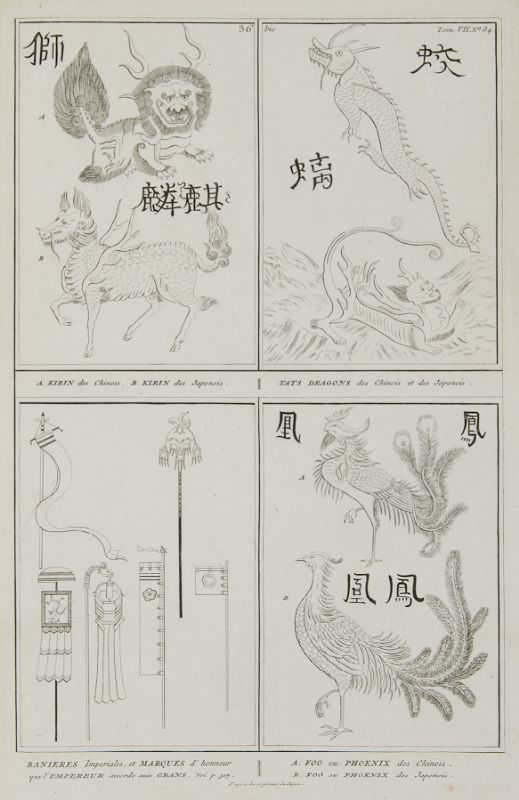 36 bis
Tom. VII. Nº 84.
獅
A
麒麟
B
蛟
螭
A. KIRIN des Chinois. B. KIRIN des Japonois.
TATS DRAGONS des Chinois et des Japonois.
凰 鳳
A
凰 鳳
B
BANIERES Imperiales, et MARQUES d'honneur
que l'EMPEREUR accorde aux GRANS. Voi p. 317.
A. FOO ou PHOENIX des Chinois.
B. FOO ou PHOENIX des Japonois.